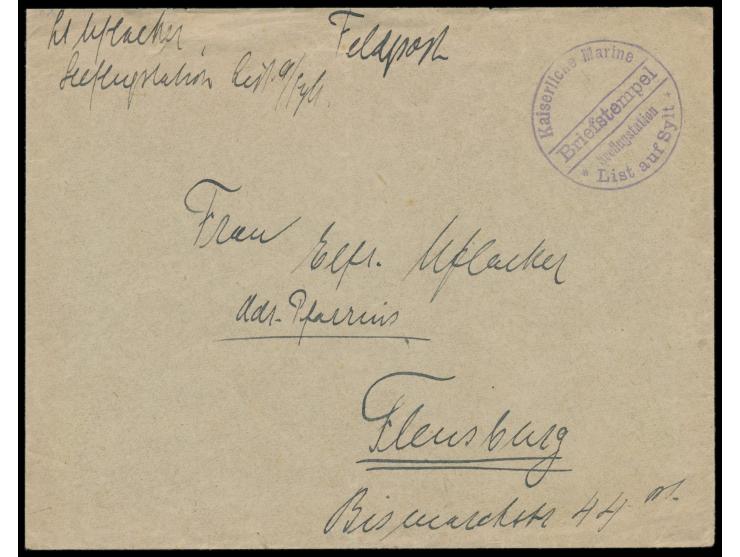 Lt Uflacker,
Feldpost
Seeflugstation List a/Sylt.
Kaiserliche Marine
Briefstempel
Seeflugstation
* List auf Sylt *
Frau Elfr. Uflacker
Adr. Pfarrius
Flensburg
Bismarckstr 44